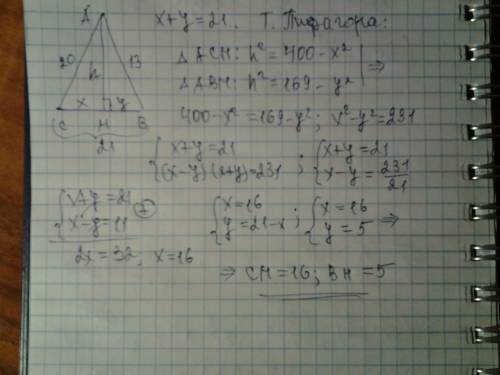 A
x+y=21. Т. Пифагора:
20 h 13
ΔACH: h²=400-x²
ΔABH: h²=169-y² | ⇒
x y
C H B
21
400-x²=169-y²; x²-y²=231
{x+y=21
{(x-y)(x+y)=231 ; {x+y=21
{x-y=231/21
{x+y=21
{x-y=11 (+)
2x=32; x=16
{x=16
{y=21-x ; {x=16
{y=5 ⇒
⇒ CH=16; BH=5